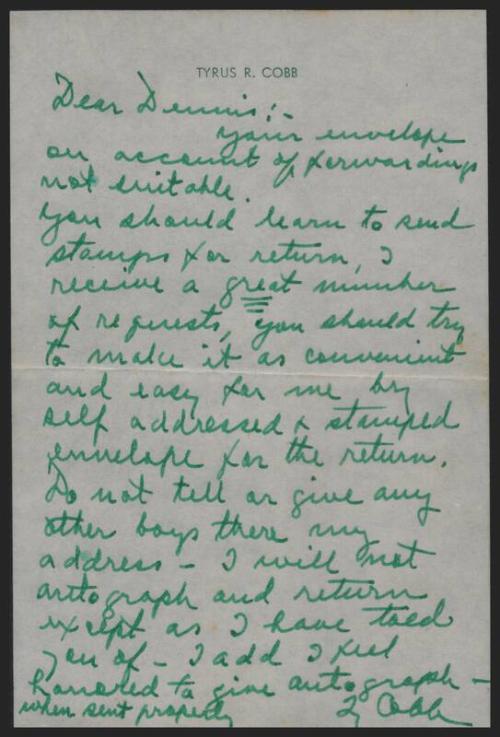 TYRUS R. COBB
Dear Dennis:-
your envelope
on account of forwardings
not suitable.
You should learn to send
stamps for return, I
receive a great number
of requests, you should try
to make it as convenient
and easy for me by
self addressed & stamped
envelope for the return.
Do not tell or give any
other boys there my
address - I will not
autograph and return
except as I have told
you of - I add I feel
honored to give autograph -
when sent properly Ty Cobb